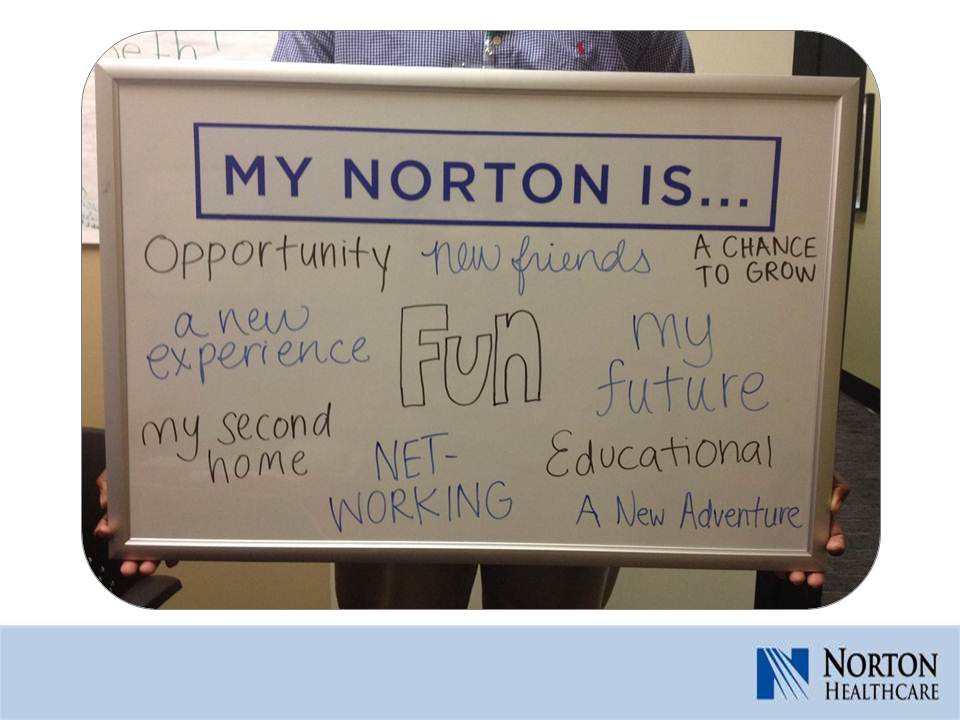 eth!
MY NORTON IS...
Opportunity new friends A CHANCE
TO GROW
a new
experience
Fun
my
future
my second
home
NET-
WORKING
Educational
A New Adventure
NORTON
HEALTHCARE